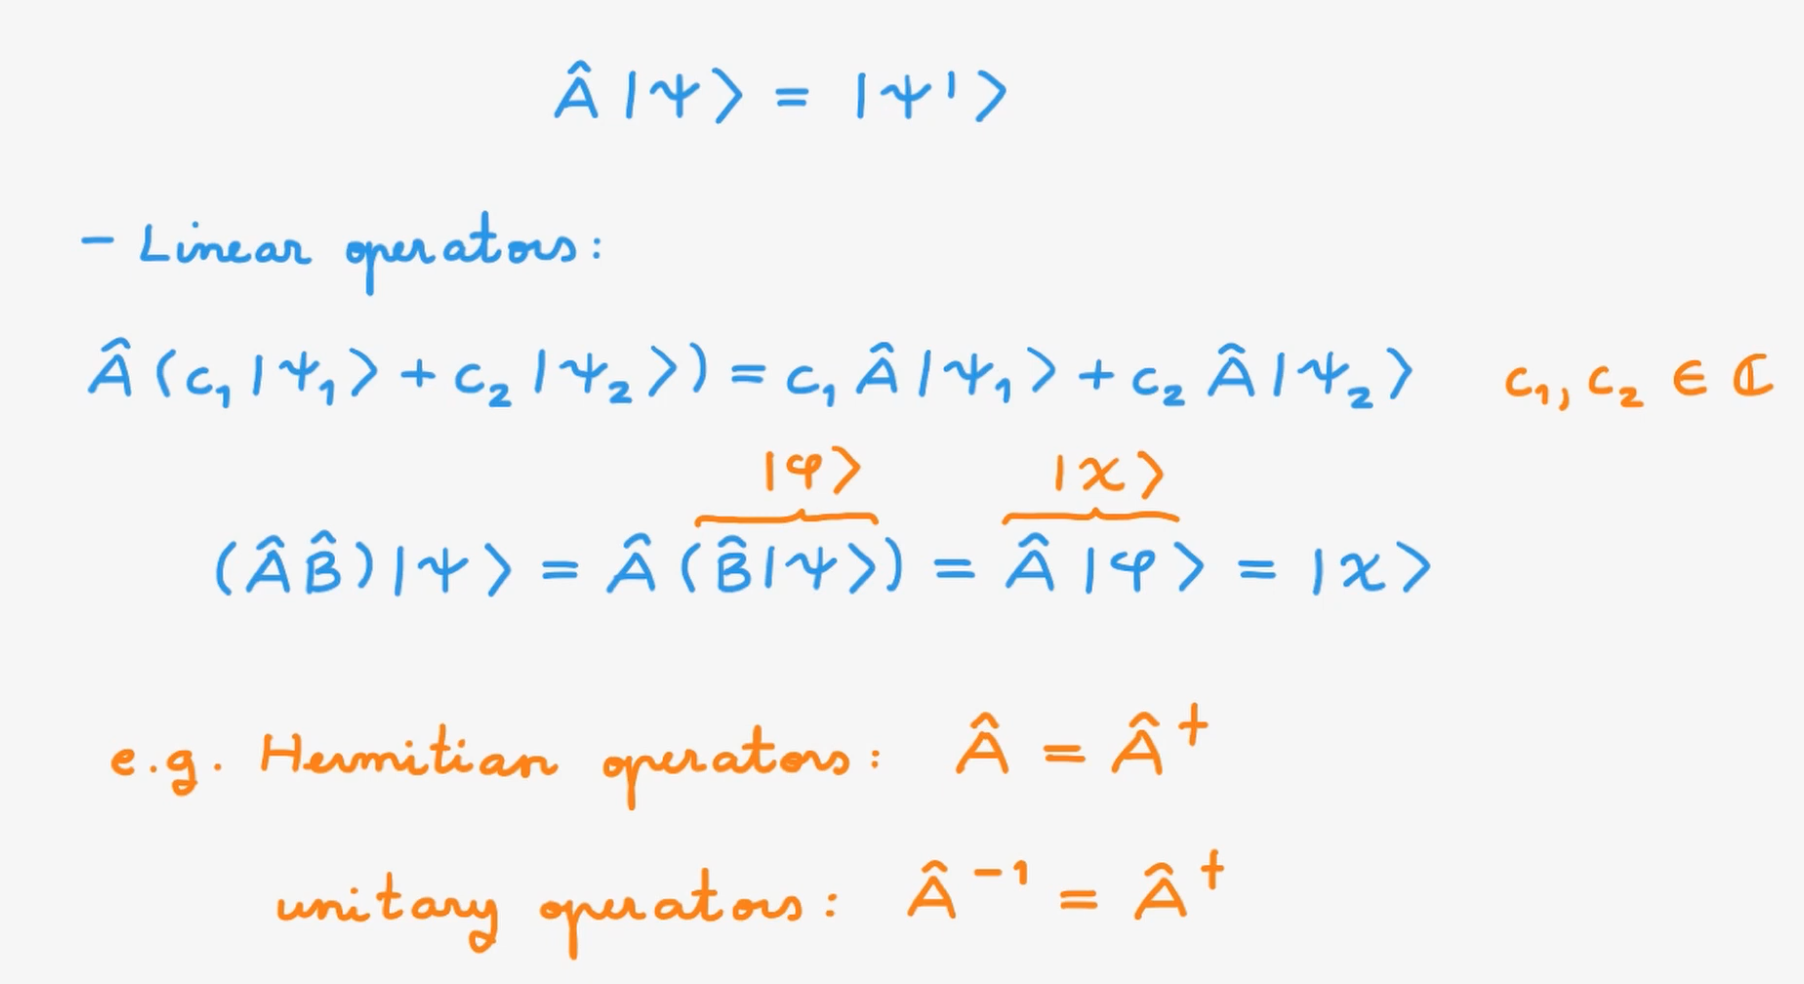 Â |ψ⟩ = |ψ'⟩
- Linear operators:
Â (c₁ |ψ₁⟩ + c₂ |ψ₂⟩) = c₁ Â |ψ₁⟩ + c₂ Â |ψ₂⟩ c₁, c₂ ∈ ℂ
|φ⟩ |χ⟩
(ÂB̂)|ψ⟩ = Â (B̂|ψ⟩) = Â |φ⟩ = |χ⟩
e.g. Hermitian operators: Â = Â†
unitary operators: Â⁻¹ = Â†